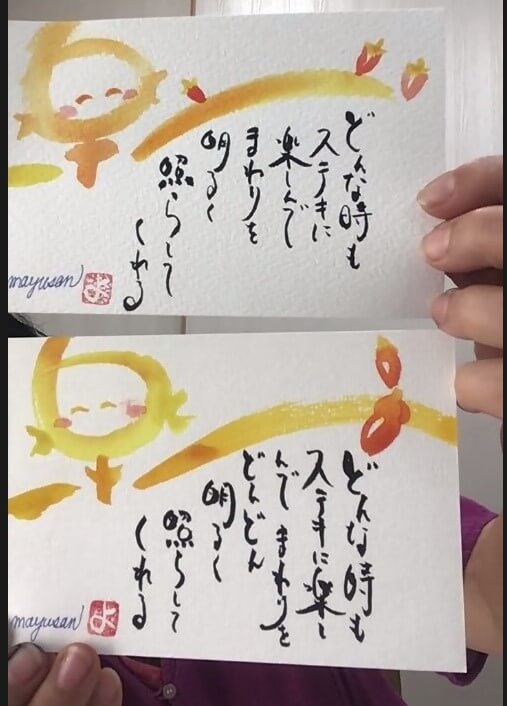 どんな時も
ステキに
楽しんで
まわりを
明るく
照らして
くれる
mayusan
よ
どんな時も
ステキに楽し
んでまわりを
どんどん
明るく
照らして
くれる
mayusan
よ